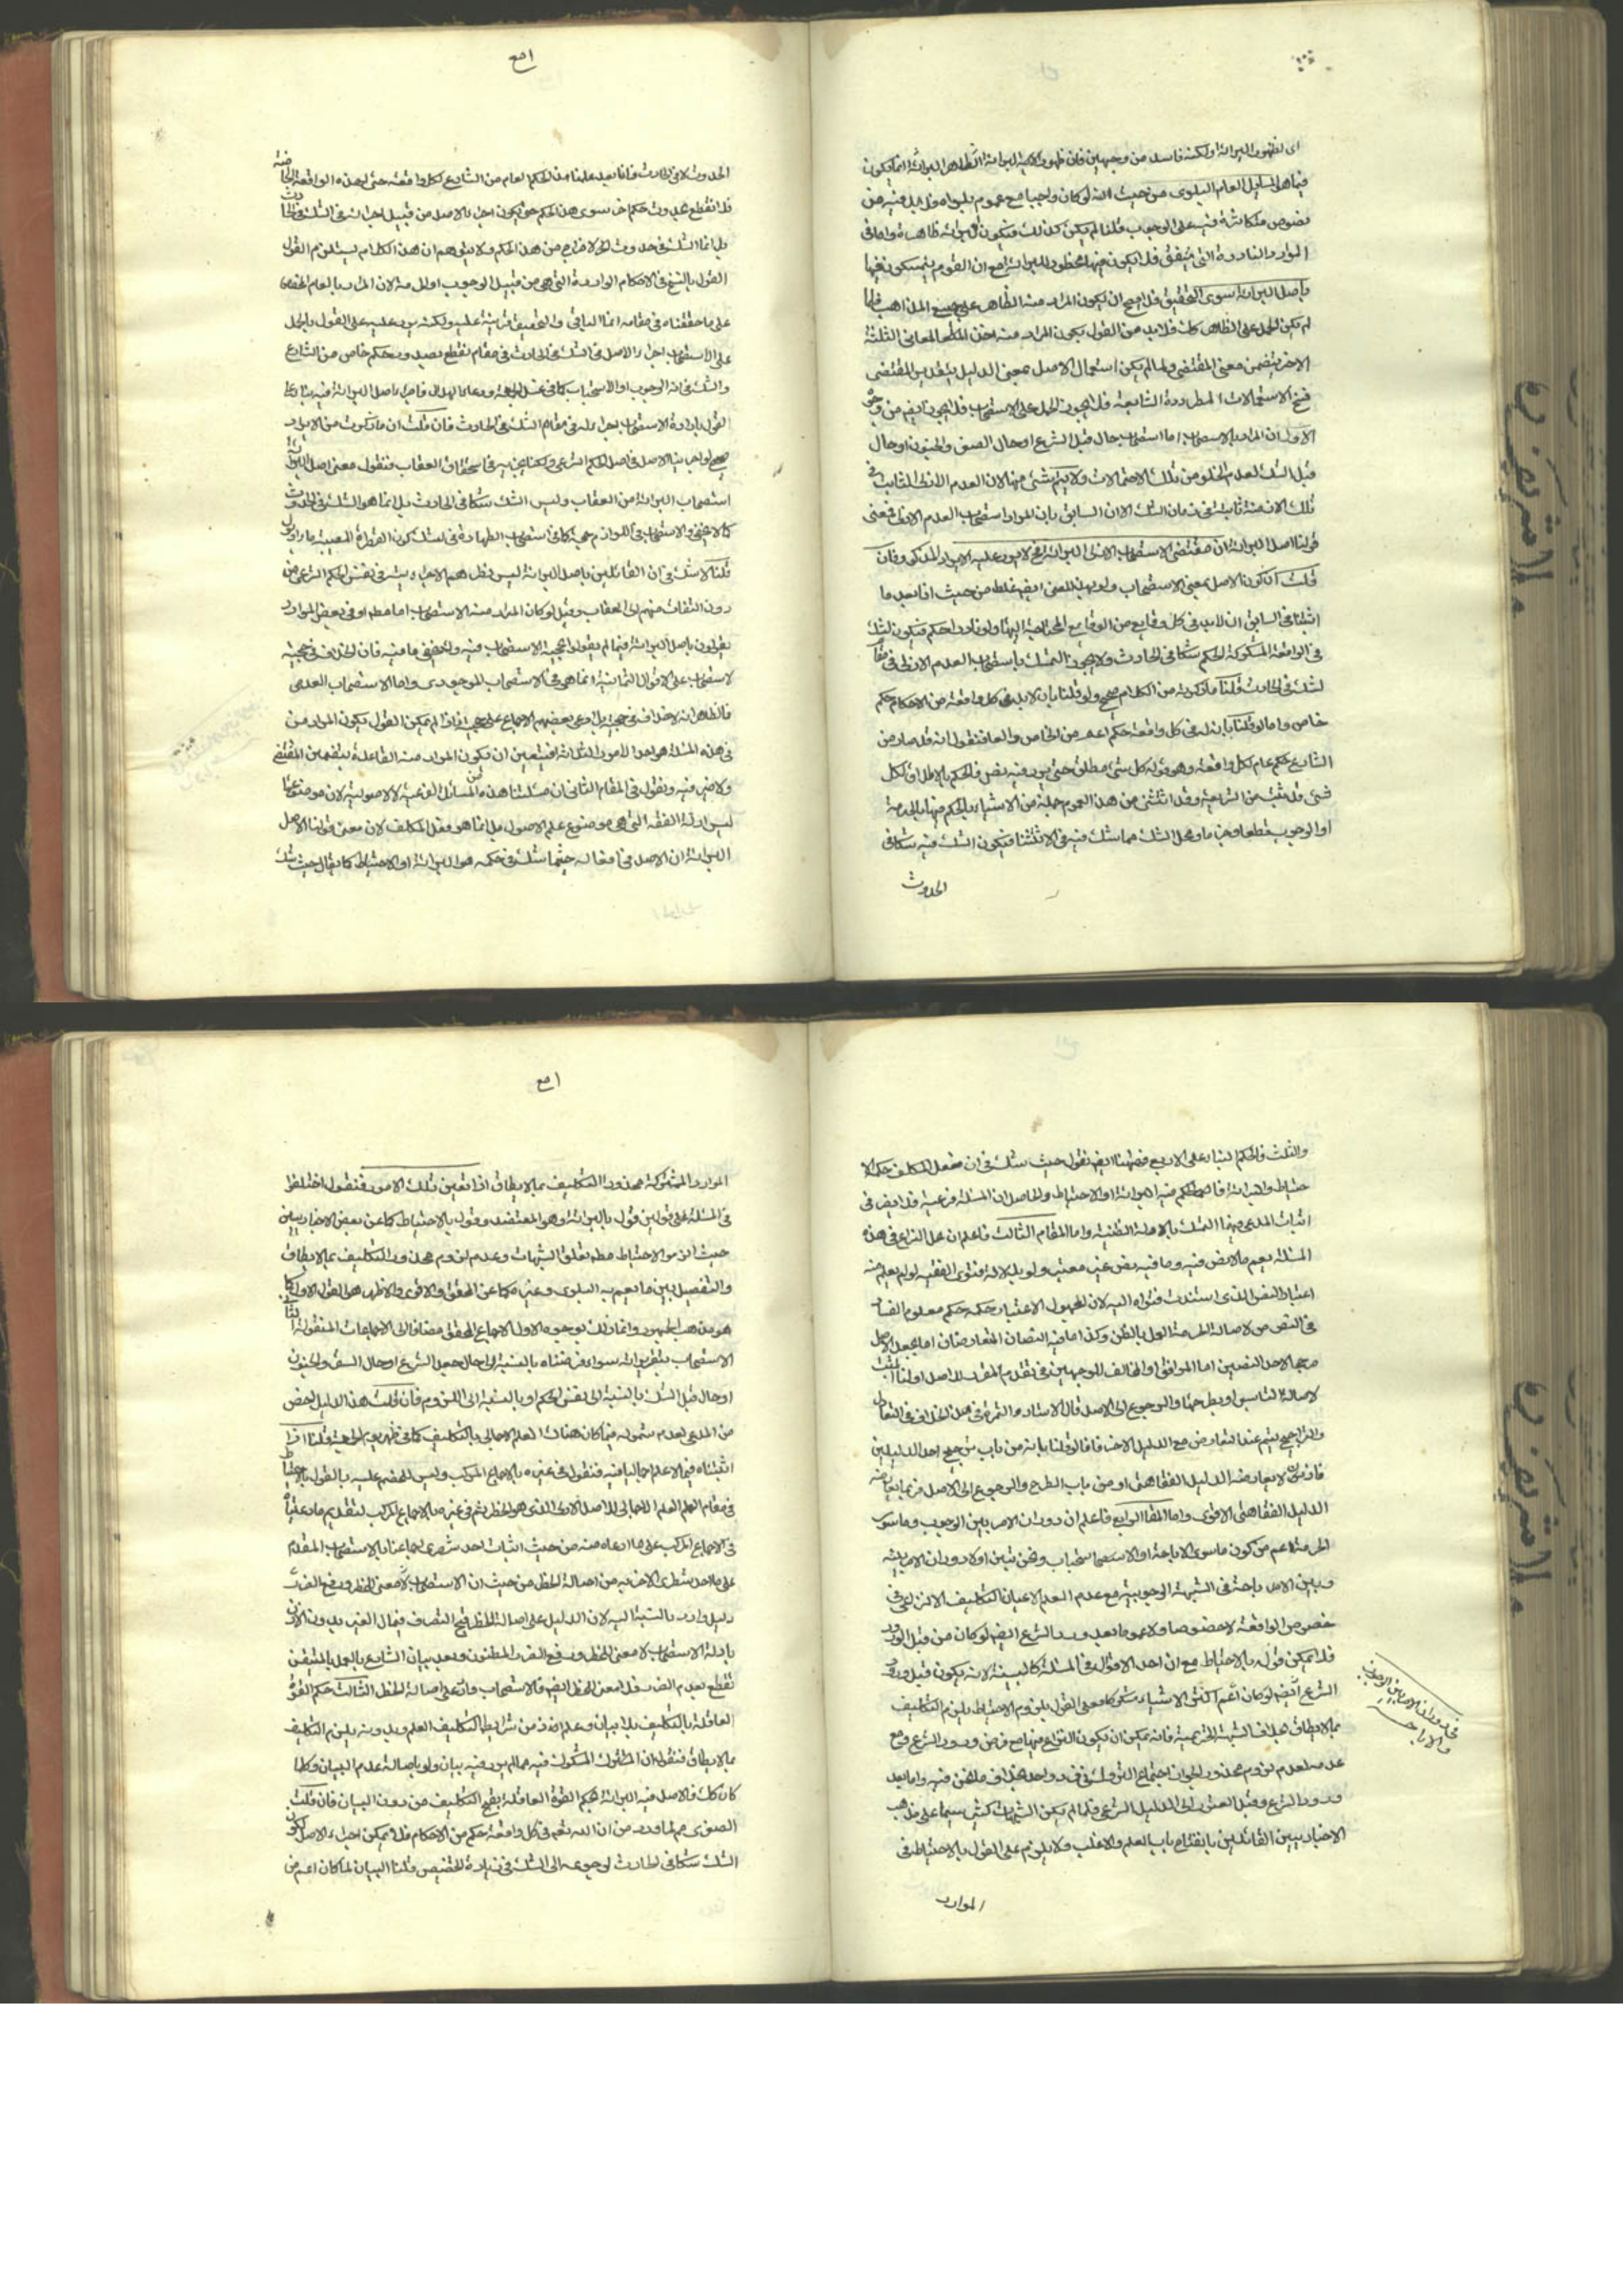 اى لظهور البرائة ولكنه فاسد من وجهين فان ظهور اصالة البرائة الظاهر البرائة انما يكون
فيما هى المسايل العام البلوى من حيث انه لو كان واجبا مع عموم بلواه فلابد فيه من
نصوص متكاثرة فيه على الوجوب قلنا لم يكن كذلك فيكون البرائة ظاهرة واما فى
الموارد النادرة التى يتفق فلا يكون فيها ظهور للبرائة مع ان القوم يتمسكون فيها
باصل البرائة سوى التحقيق فلا يصح ان يكون المراد منه الظاهر على جميع المذاهب فلما
لم يكن الحمل على الظاهر كك فلابد من القول بكون المراد منه احد المعانى الثلثة
الاخر يتضمن معنى المقتضى ولما لم يكن استعمال الاصل بمعنى الدليل بتقدير المقتضى
من الاستعمالات المطردة الشايعة فلا يجوز الحمل على الاستصحاب فلا يجوز ايضا من وجوه
الاول ان المراد بالاستصحاب اما استصحاب حال قبل الشرع او حال الصغر والجنون او حال
قبل الشك لعدم الخلو من تلك الاحتمالات ولا يتم شئ منها لان العدم الازلى الثابت فى
تلك الازمنة ثابت فى زمان الشك الان السابق بان المراد استصحاب العدم الازلى فمعنى
قولنا اصل البرائة ان مقتضى الاستصحاب الازلى البرائة الخ لا يرد عليه الايراد المذكور فان
قلت ان كون الاصل بمعنى الاستصحاب ولو بهذا المعنى ايضا غلط من حيث انا بعد ما
اثبتنا فى السابق ان لابد فى كل وقايع من الوقايع المحتاجة اليها ولو نادرا حكم فيكون الشك
فى الواقعة المشكوكة الحكم شكا فى الحادث ولا يجوز التمسك باستصحاب العدم الازلى فى مقام
الشك فى الحادث قلنا ما ذكرته من الكلام صحيح ولو قلنا بان لابد فى كل واقعة من الاحكام حكم
خاص واما لو قلنا بانه له فى كل واقعة حكم اعم من الخاص والعام فنقول انه قد صار من
الشارع حكم عام لكل واقعة وهو قوله كل شئ مطلق حتى يرد فيه نص فالحكم بالاطلاق لكل
شئ قد ثبت من الشريعة وقد استثنى من هذا العموم جملة من الاشياء بالحكم فيها بالحرمة
او الوجوب قطعا وجزما ومحل الشك مما شك فيه فى الاستثناء فيكون الشك فيه شكا فى
الحدوث
الحدوث لا فى الحادث فانا بعد علمنا من الحكم العام من الشارع لكل واقعة حتى لهذه الواقعة الخاصة
فلا نقطع بحدوث حكم اخر سوى هذا الحكم حتى يكون اجراء الاصل من قبيل اجرائه فى الشك فى الحادث
بل انما الشك فى حدوث الاخراج من هذا الحكم ولا يتوهم ان هذا الكلام يستلزم القول
القول بالنسخ فى الاحكام الواردة التى هى من قبيل الوجوب او الحرمة لان المراد بالعام المخصص
على ما حققناه فى مقامه انما الباقى والتخصيص قرينة عليه ولكنه يرد عليه على القول بالحمل
على الاستصحاب اجراء الاصل فى الشك فى الحادث فى مقام نقطع بصدور حكم خاص من الشارع
والشك فى انه الوجوب او الاستحباب كما فى غسل الجمعة ودعاء الهلال فاجراء اصل البرائة فيه ينافى
القول بارادة الاستصحاب لعدم اجرائه فى مقام الشك فى الحادث فان قلت ان ما ذكرت من الايراد
صحيح لو اجرينا الاصل فى اصل الحكم الشرعى ولكنا نجريه فى استحقاق العقاب فنقول معنى اصل البرائة
استصحاب البرائة من العقاب وليس الشك شكا فى الحادث بل انما هو الشك فى الحدوث
كما لا يخفى والاستصحاب فى اللوازم حجة كما فى استصحاب الطهارة
قلنا لا شك فى ان القائلين باصل البرائة ليس نظرهم الا اجرائه فى نفس الحكم الشرعى من
دون التفات منهم الى العقاب وقيل لو كان المراد منه الاستصحاب اما مطم او فى بعض الموارد
يقولون باصل البرائة فيما لم يقولوا بحجية الاستصحاب فيه ولا يخفى ما فيه فان الخلاف فى حجية
الاستصحاب على الاقوال الثمانية انما هى فى الاستصحاب الموجودى واما الاستصحاب العدمى
فالظاهر انه لا خلاف فى حجيته بل ادعى بعضهم الاجماع على حجيته فاذا لم يكن القول بكون المراد من
فى هذه المسئلة هو احد الامور الثلاثة فيتعين ان يكون المراد منه القاعدة بتضمين المقتضى
ولا ضير فيه ونقول فى المقام الثانى ان مسئلتنا هذه من المسائل الفرعية لا الاصولية لان موضوعها
ليس ادلة الفقه التى هى موضوع علم الاصول بل انما هو فعل المكلف لان معنى قولنا الاصل
البرائة ان الاصل فى افعاله حيثما شك فى حكمه هو البرائة او الاحتياط كما يقال حيث شك
والثلث فالحكم البناء على الاربع فههنا ايضا نقول حيث شك فى ان فعل المكلف حكمه الا
حتياط والبرائة فالحكم فيه البرائة او الاحتياط والحاصل ان المسئلة فرعية فلا يضر فى
اثبات المدعى فيها التمسك بالادلة الظنية واما المقام الثالث فاعلم ان محل النزاع فى هذه
المسئلة يعم ما لا نص فيه وما فيه نص غير معتبر ولو بدلالة فتوى الفقيه لو لم يعلم منه
اعتبار النص الذى استندت فتواه اليه لان المجهول الاعتبار حكمه حكم معلوم الفساد
فى النقص من لاصالة الحرمة العمل بالظن وكذا ما فيه النصان المتعارضان اما يجعل الاصل
مرجحا لاحد النصين اما الموافق او المخالف للوجهين فى تقدم المقرر للاصل او الناقل
لاصالة التاسيس او يطرحهما والرجوع الى الاصل قال الاستاد والثمرة فى هذا الخلاف فى التعادل
والتراجيح يتم عند التعارض مع الدليل الاخر فاذا قلنا بانه من باب ترجيح احد الدليلين
فاذن لا يعارضه الدليل الفقاهتى او من باب الطرح والرجوع الى الاصل فربما يعارضه
الدليل الفقاهتى الاقوى واما المقام الرابع فاعلم ان دوران الامر بين الوجوب وما سوى
الحرمة اعم من كون ما سوى الاباحة او الاستحباب ونحن نبين اولا دوران الامر بينه
وبين الاباحة فى الشبهة الوجوبية مع عدم العلم الاجمالى بالتكليف الالزامى فى
خصوص الواقعة لا خصوصا ولا عموما بعد ورود الشرع ايضا لو كان من قبل الورود
فلا يمكن قوله بالاحتياط مع ان احد الاقوال فى المسئلة كالبينة لانه يكون قبل ورود
الشرع ايضا لو كان اعم اكثر الاشياء مشكوكا فعلى القول بلزوم الاحتياط يلزم التكليف
بما لا يطاق بخلاف الشبهة التحريمية فانه يمكن ان يكون النزاع فيها مع فرض ورود الشرع ومع
عدمه لعدم لزوم محذور لجواز اجتماع التروك فى فرد واحد بخلاف ما نحن فيه واما بعد
ورود الشرع وقبل العثور الى الدليل الشرعى فلما لم يكن الشبهات كثيرة سيما على مذهب
الاخباريين القائلين بانفتاح باب العلم والاغلب ولا يلزم على القول بالاحتياط فى
الموارد
فى دوران الامر بين الوجوب
والاباحة
الموارد المشكوكة محذور التكليف بما لا يطاق اذا تعين تلك الامور فنقول اختلفوا
فى المسئلة على قولين قول بالبرائة وهو المعتضد وقول بالاحتياط كما عن بعض الاخباريين
حيث الزموا الاحتياط مطم بقلة الشبهات وعدم لزوم محذور التكليف بما لا يطاق
والتفصيل بين ما يعم به البلوى وغيره كما عن المحقق والاقوى والاظهر هو القول الاول كما
هو مذهب الجمهور وانما ذلك لوجوه الاول الاجماع المحقق مضافا الى الاجماعات المنقولة الثانى
الاستصحاب بتقريراته سواء فرضناه بالنسبة الى حال قبل الشرع او حال الصغر والجنون
او حال قبل الشك بالنسبة الى نفس الحكم او بالنسبة الى اللزوم فان قلت هذا الدليل اخص
من المدعى لعدم شموله فيما كان هناك العلم الاجمالى بالتكليف كما فى ظهر يوم الجمعة قلنا اذا
اثبتناه فيما لا علم اجماليا فيه فنقول فى غيره بالاجماع المركب وليس للخصم عليه بالقول بالاحتياط
فى مقام العلم الاجمالى للاصل الاولى الذى هو الحظر ثم فى غيره بالاجماع المركب لتقديم مادعيناه
فى الاجماع المركب على ما ادعاه منه من حيث اثبات احد شطرى اجماعنا بالاستصحاب المقدم
على ما لاحد شطرى الاخر به من اصالة الحظر من حيث ان الاستصحاب لا معنى للحظر ودفع الضرر
دليل وارد بالنسبة اليه لان الدليل على اصالة الحظر قبح التصرف فى مال الغير بدون الاذن
بادلة الاستصحاب لا معنى للحظر ودفع الضرر المظنون وبعد بيان الشارع بالعمل بالمتيقن
نقطع بعدم الضرر فلا معنى للحظر ايضا فالاستصحاب وارد على اصالة الحظر الثالث حكم القوة
العاقلة بالتكليف بلا بيان وعلم اذ من شرايط التكليف العلم وبدونه يلزم التكليف
بما لا يطاق فنقول ان المشكوك فيه مما لم يرد فيه بيان ولو باصالة عدم البيان وكلما
كان كك فالاصل فيه البرائة بحكم القوة العاقلة بقبح التكليف من دون البيان فان قلت
الصغرى مم لما ورد من ان الله تعم فى كل واقعة حكم من الاحكام فلا يمكن اجراء الاصل لكون
الشك شكا فى الحادث لرجوعه الى الشك فى زيادة المخصص قلنا البيان لما كان اعم من